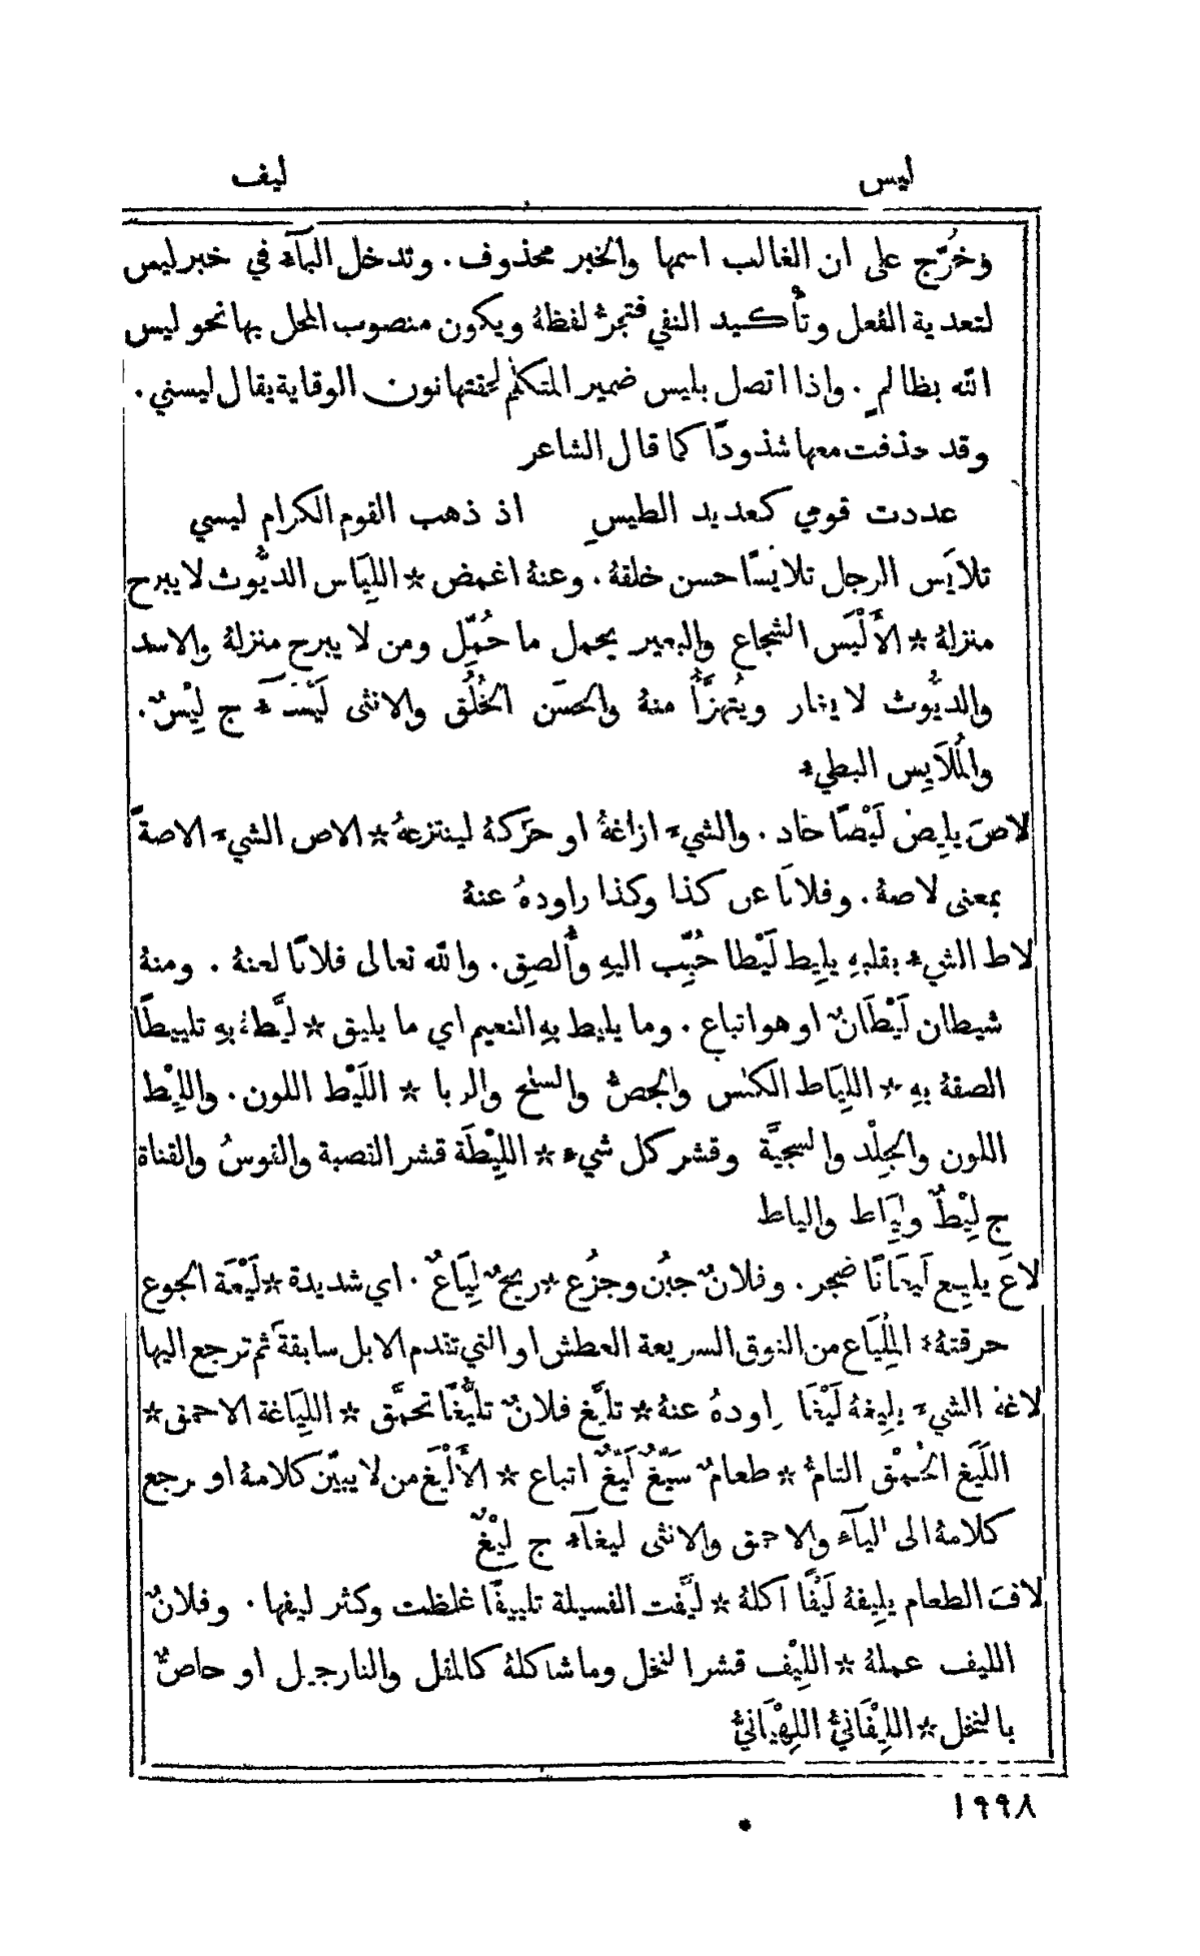 ليس ليف
وخُرِّج على ان الغالب اسمها والخبر محذوف. وتدخل البآء في خبر ليس
لتعدية الفعل وتأكيد النفي فتجرُّ لفظهُ ويكون منصوب المحل بها نحو ليس
الله بظالمٍ. واذا اتصل بليس ضمير المتكلم لحقتها نون الوقاية يقال ليسني.
وقد حذفت معها شذوذًا كما قال الشاعر
عددت قومي كعديد الطيسِ اذ ذهب القوم الكرام ليسي
تلايَس الرجل تلايُسًا حسن خلقهُ. وعنهُ اغمض * اللِيَاس الديُّوث لا يبرح
منزلهُ * الأَلْيَس الشجاع والبعير يحمل ما حُمِّل ومن لا يبرح منزلهُ والاسد
والديُّوث لا يغار ويُتهزَّأُ منهُ والحسَن الخُلُق والانثى لَيْسَآء ج لِيْسٌ.
والمُلاَيِس البطيء
لاصَ يليِص لَيْصًا حاد. والشيءَ ازاغهُ او حرَّكهُ لينتزعهُ * الاص الشيءَ الاصةً
بمعنى لاصهُ. وفلانًا عن كذا وكذا راودهُ عنهُ
لاط الشيء بقلبهِ يليِط لَيْطا حُبِّب اليهِ وأُلصِق. والله تعالى فلانًا لعنهُ. ومنهُ
شيطان لَيْطَانٌ او هو اتباع. وما يليط بهِ النعيم اي ما يليق * ليَّطهُ بهِ تلييطًا
الصقهُ بهِ * اللِيَاط الكلس والجصُّ والسلح والربا * اللَيْط اللون. والليِْط
اللون والجِلْد والسجيَّة وقشر كل شيء * الليِْطَة قشر القصبة والقوسُ والقناة
ج لِيْطٌ ولِيَاط والياط
لاعَ يليِع لَيَعَانًا ضجر. وفلانٌ جبُن وجزُع * ريحٌ لِيَاعٌ. اي شديدة * لَيْعَة الجوع
حرقتهُ * المِلْيَاع من النوق السريعة العطش او التي تتقدم الابل سابقةً ثم ترجع اليها
لاغهُ الشيءَ يلِيغهُ لَيْغًا راودهُ عنهُ * تليَّغ فلانٌ تليُّغًا تحمَّق * اللِيَاغة الاحمق *
اللَيَغ الحُمْق التامُّ * طعامٌ سَيِّغٌ لَيِّغٌ اتباع * الأَلْيَغ من لا يبيِّن كلامهُ او يرجع
كلامهُ الى اليآء والاحمق والانثى ليغآء ج لِيْغٌ
لافَ الطعام يليِفهُ لَيْفًا اكلهُ * ليَّفت الفسيلة تلييفًا غلظت وكثر ليفها. وفلانٌ
الليف عملهُ * الليِْف قشر النخل وما شاكلهُ كالمقل والنارجيل او خاصٌّ
بالنخل * الليِْفَانيُّ اللِحْيَانيُّ
١٩٩٨